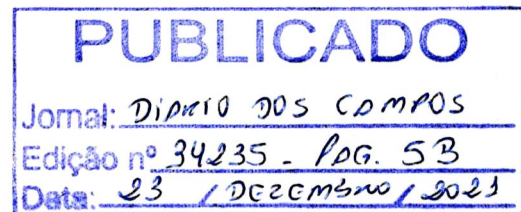 PUBLICADO
Jornal: DIARIO DOS CAMPOS
Edição nº 34235 - PAG. 5B
Data: 23 / DEZEMBRO / 2021